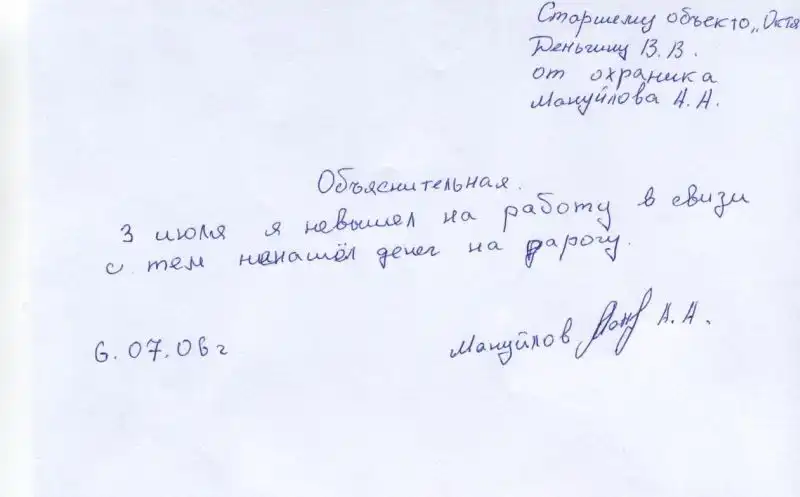 Старшему объекто „Октя
Деньгину В.В.
от охраника
Мануйлова А.А.
Объяснительная.
3 июля я невышел на работу в свизи
с тем ненашёл денег на дарогу.
6.07.06 г
Мануйлов А.А.